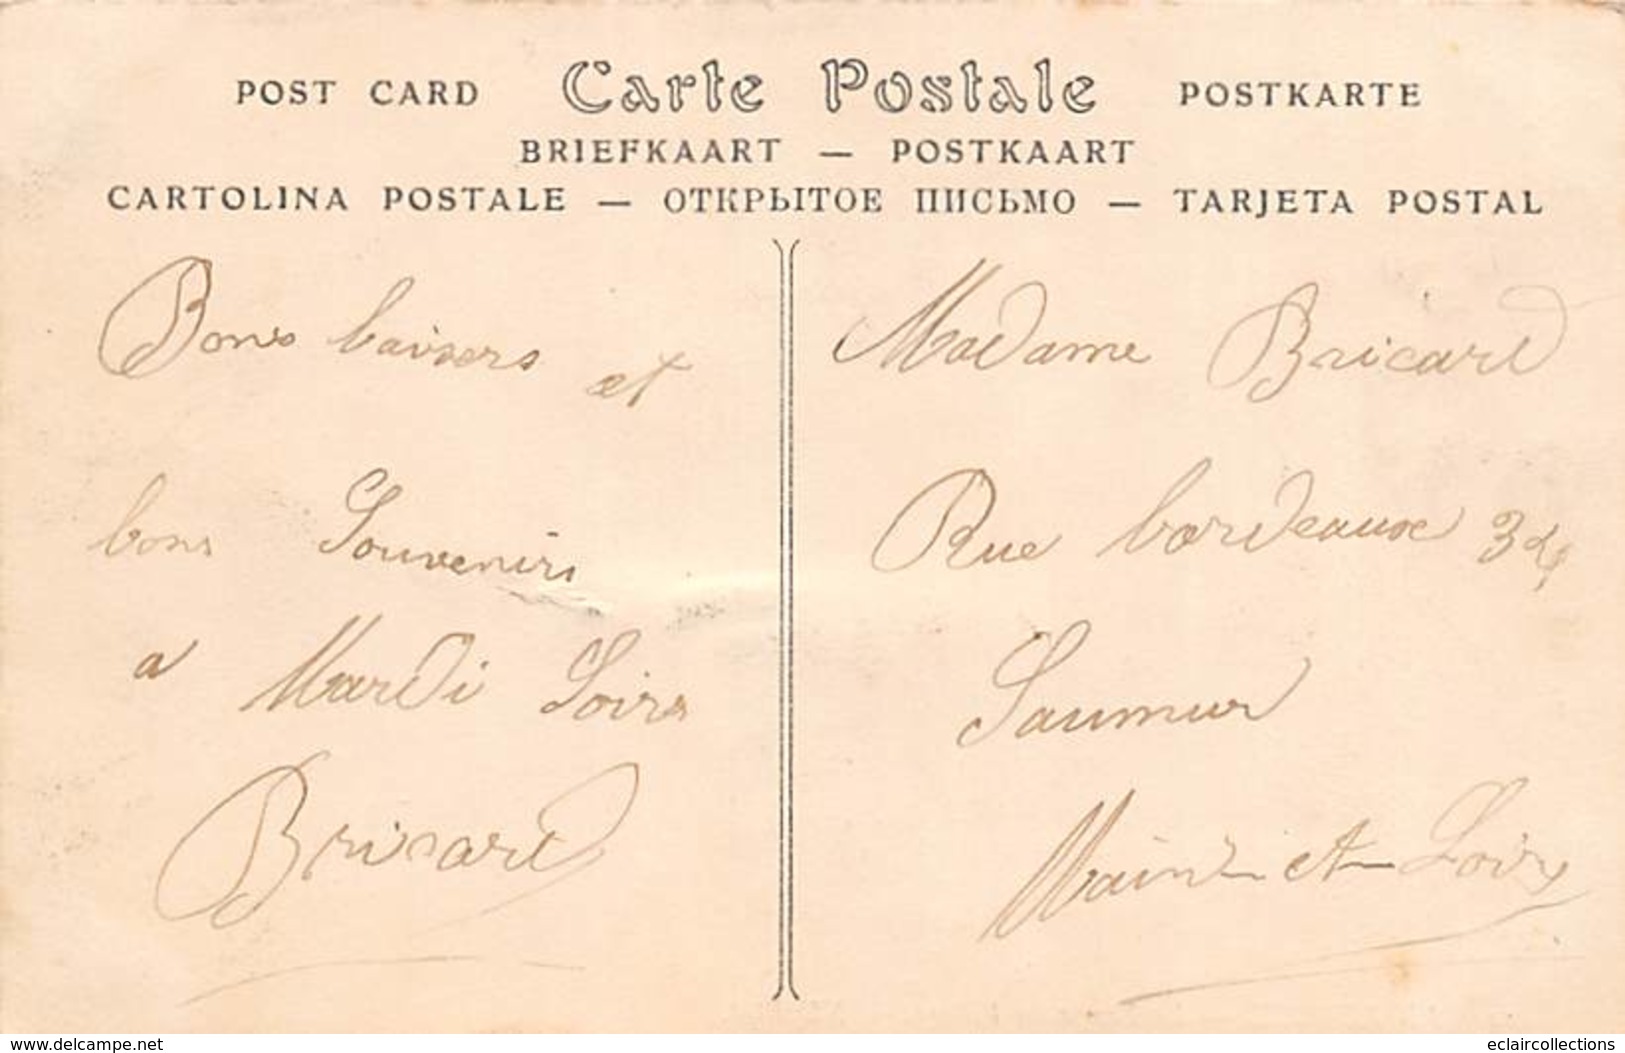 POST CARD Carte Postale POSTKARTE
BRIEFKAART — POSTKAART
CARTOLINA POSTALE — ОТКРЫТОЕ ПИСЬМО — TARJETA POSTAL
Bons baisers et
bons Souvenirs
a Mardi Soir
Bricard
Madame Bricard
Rue bordeaux 34
Saumur
Maine et Loire
www.delcampe.net
eclaircollections